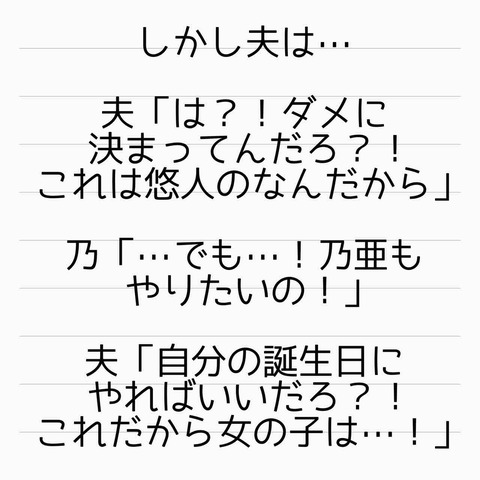 しかし夫は…
夫「は?！ダメに
決まってんだろ?！
これは悠人のなんだから」
乃「…でも…！乃亜も
やりたいの！」
夫「自分の誕生日に
やればいいだろ?！
これだから女の子は…！」